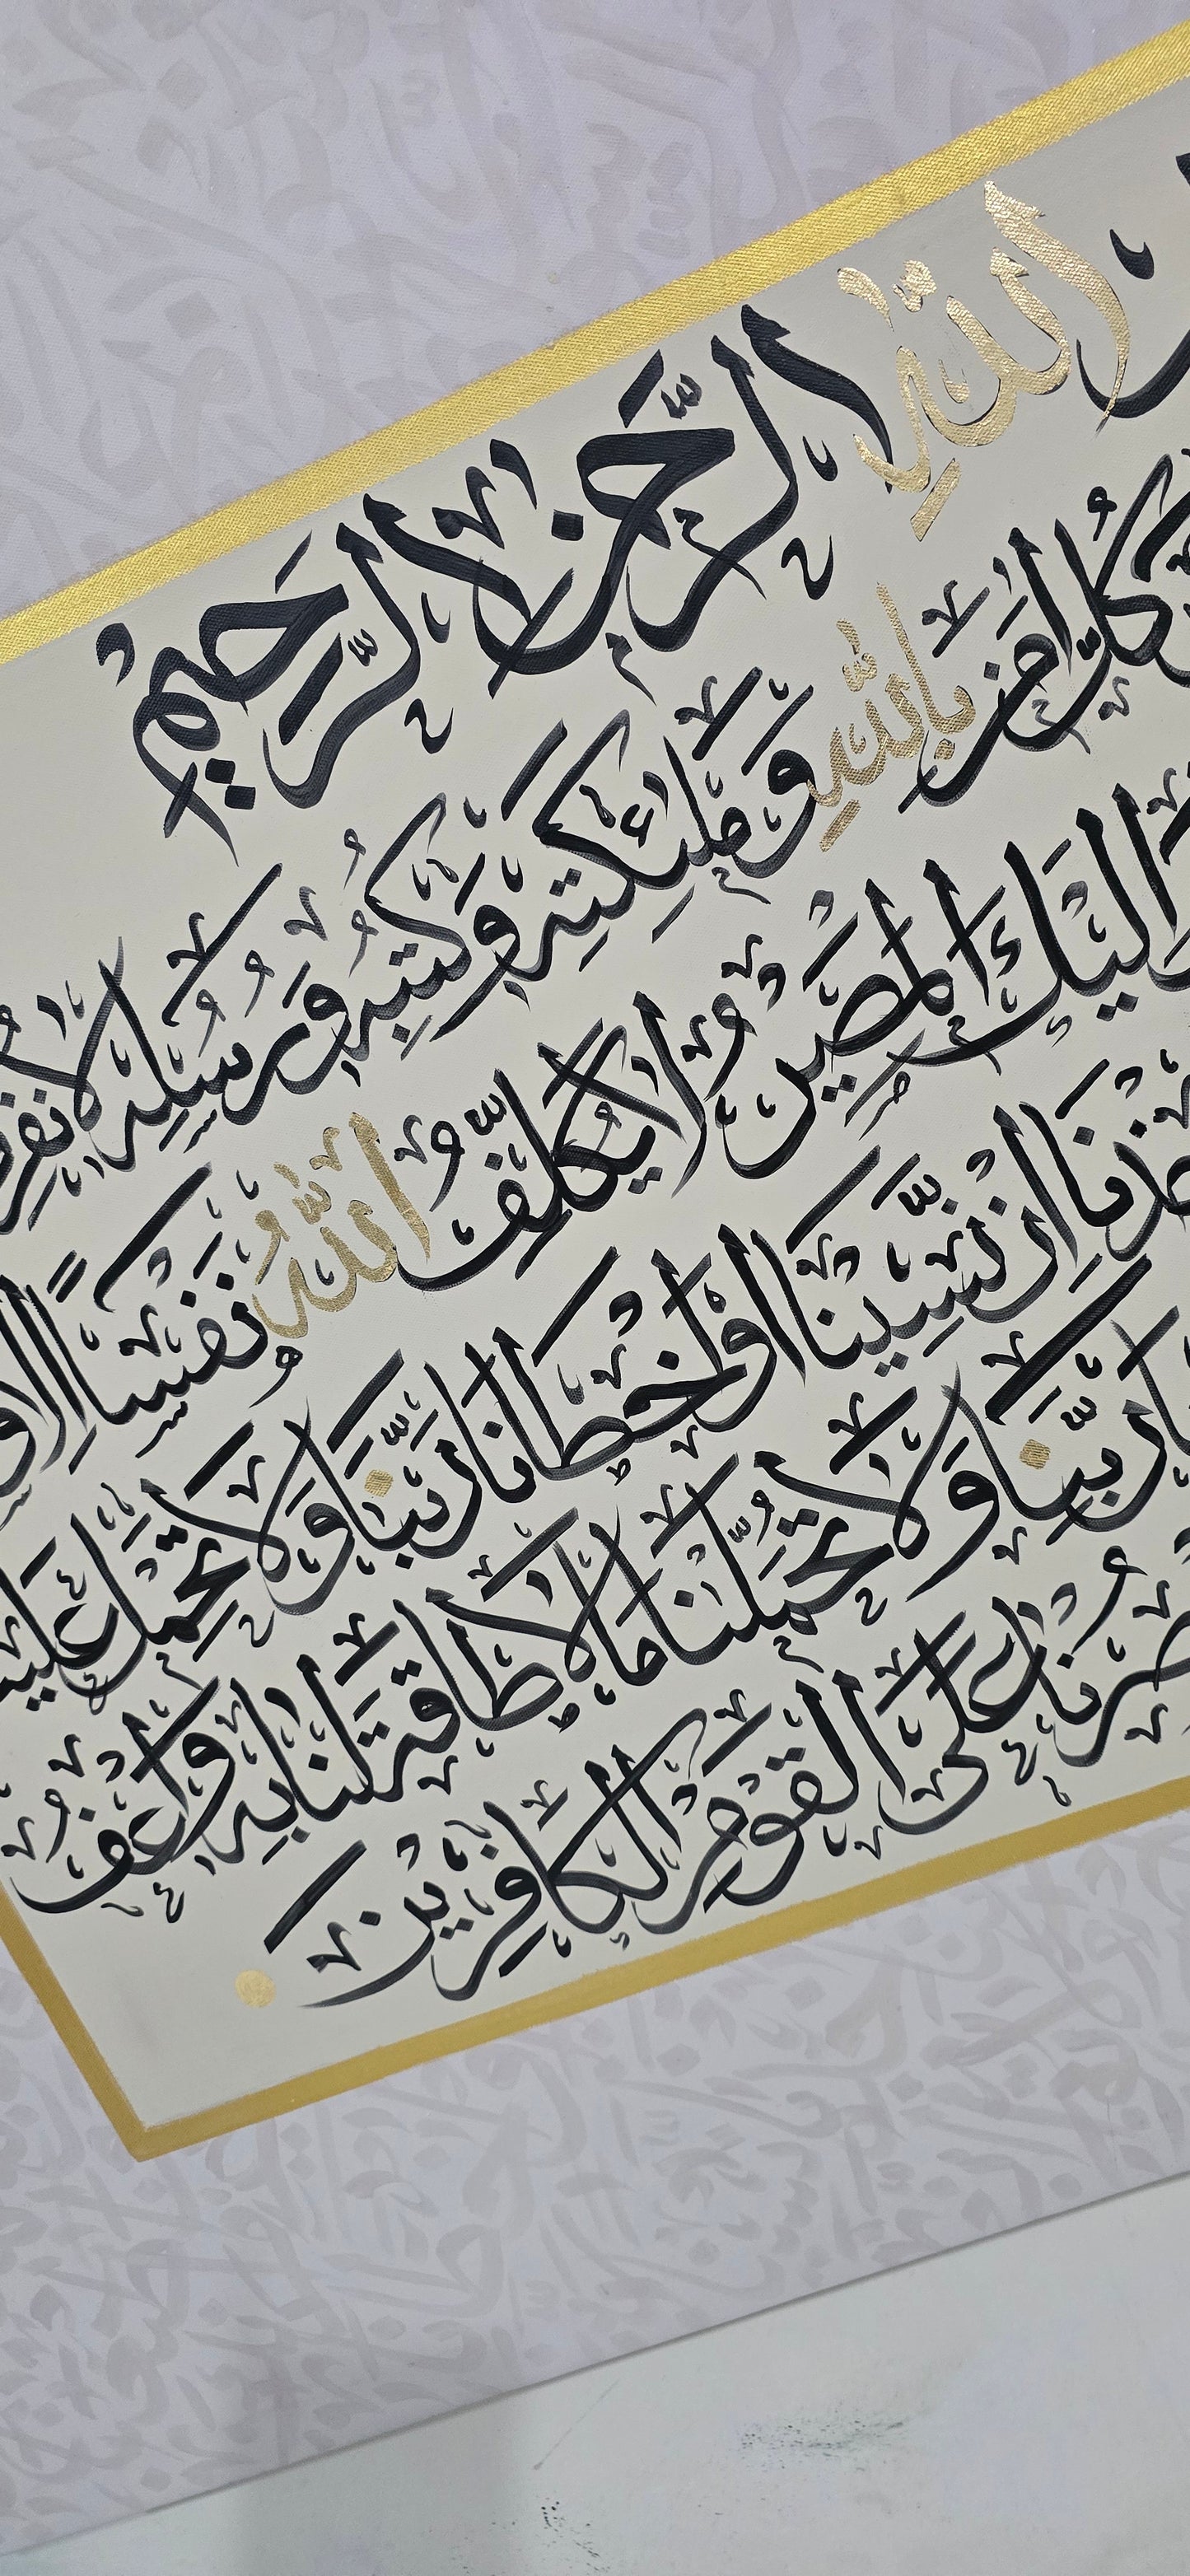 اللهِ الرَّحْمٰنِ الرَّحِيْمِ
كُلٌّ اٰمَنَ بِاللّٰهِ وَمَلٰٓئِكَتِهٖ وَكُتُبِهٖ وَرُسُلِهٖ لَا نُفَرِّقُ
اِلَيْكَ الْمَصِيْرُ لَا يُكَلِّفُ اللّٰهُ نَفْسًا اِلَّا
اِنْ نَّسِيْنَا اَوْ اَخْطَاْنَا رَبَّنَا وَلَا تَحْمِلْ
رَبَّنَا وَلَا تُحَمِّلْنَا مَا لَا طَاقَةَ لَنَا بِهٖ وَاعْفُ
عَلَى الْقَوْمِ الْكَافِرِيْنَ